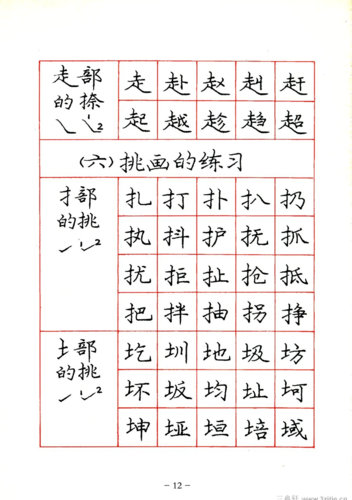 走部的捺 走 赴 赵 赳 赶
起 越 趁 趋 超
(六)挑画的练习
扌部的挑 扎 打 扑 扒 扔
执 抖 护 抚 抓
扰 拒 扯 抢 抵
把 拌 抽 拐 挣
土部的挑 圪 圳 地 圾 坊
坏 坂 均 址 坷
坤 垭 垣 培 域
- 12 -